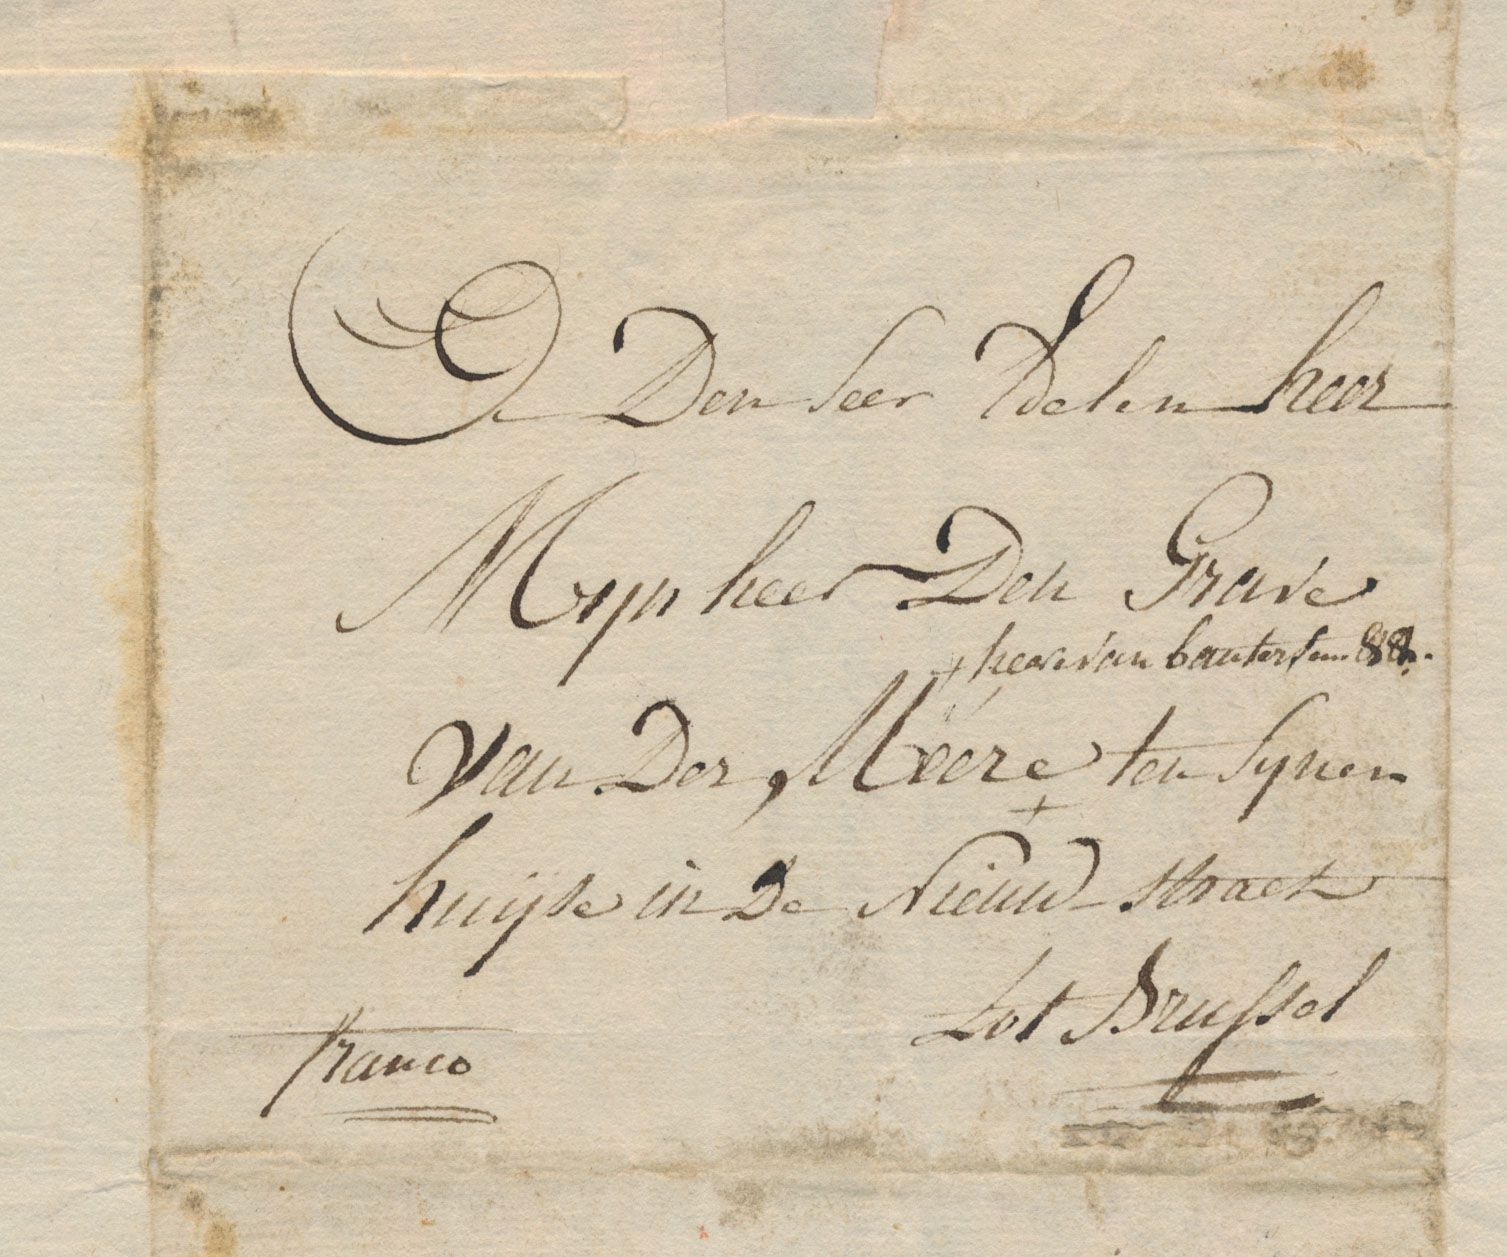 Den seer Edelen heer
Mijn heer Den Grave
+ heere van bautersem &&.
van Der Meere + ten synen
huijse in De Nieuw straet
tot Brussel
franco